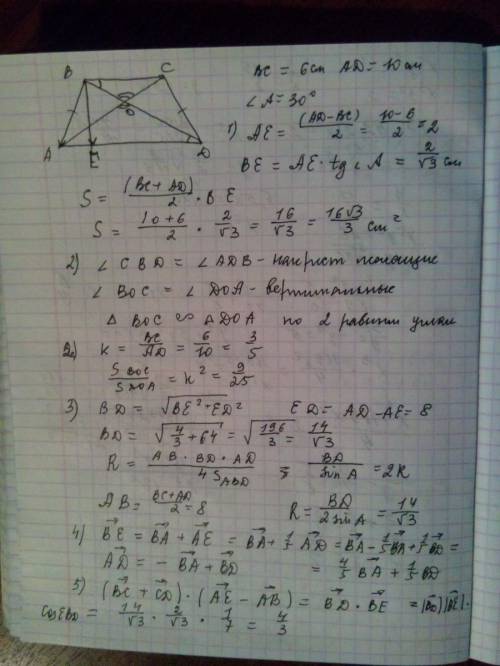 B C
A E D
O
BC = 6cm AD = 10 см
∠A = 30°
1) AE = (AD-BC)/2 = (10-6)/2 = 2
BE = AE · tg ∠A = 2/√3 см
S = (BC + AD)/2 · BE
S = (10+6)/2 · 2/√3 = 16/√3 = 16√3/3 см²
2) ∠CBD = ∠ADB - накрест лежащие
∠BOC = ∠DOA - вертикальные
△ BOC ∽ ADOA по 2 равным углам
k = BC/AD = 6/10 = 3/5
S BOC/S DOA = k² = 9/25
3) BD = √(BE² + ED²) ED = AD - AE = 8
BD = √(4/3 + 64) = √(196/3) = 14/√3
R = (AB · BD · AD)/(4 S ABD) ; BD/sin A = 2R
AB = (BC+AD)/2 = 8 R = BD/(2 sin A) = 14/√3
4) BE = BA + AE = BA + 1/5 AD = BA - 1/5 BA + 1/5 BD =
AD = - BA + BD = 4/5 BA + 1/5 BD
5) (BC + CD) · (AE - AB) = BD · BE = |BD| |BE| ·
cos EBD = 14/√3 · 2/√3 · 1/7 = 4/3